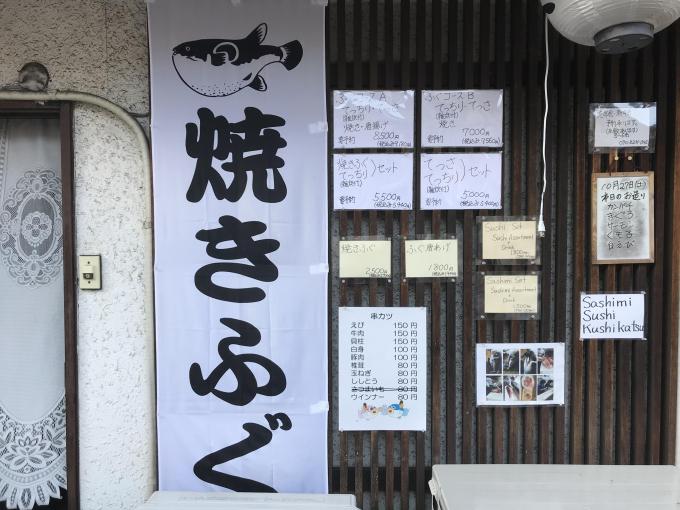 焼きふぐ
ふぐコースA
てっちり・てっさ
(雑炊付)
焼き・唐揚げ
要予約 8,500円
ふぐコースB
てっちり・てっさ
(雑炊付)
焼き
要予約 7000円
(税込み7,560円)
焼きふぐ
てっちり
(雑炊付)
セット
要予約 5,500円
(税込み5,940円)
てっさ
てっちり
(雑炊付)
セット
要予約 5000円
(税込み5,400円)
焼きふぐ
2500円
ふぐ唐あげ
1800円
Sushi Set
Sushi Assortment
+
Drink
Sashimi Set
Sashimi Assortment
+
Drink
串カツ
えび 150円
牛肉 150円
貝柱 150円
白身 100円
豚肉 100円
椎茸 80円
玉ねぎ 80円
ししとう 80円
さつまいも 80円
ウインナー 80円
10月27日(土)
本日のお造り
カンパチ
Sashimi
Sushi
Kushikatsu